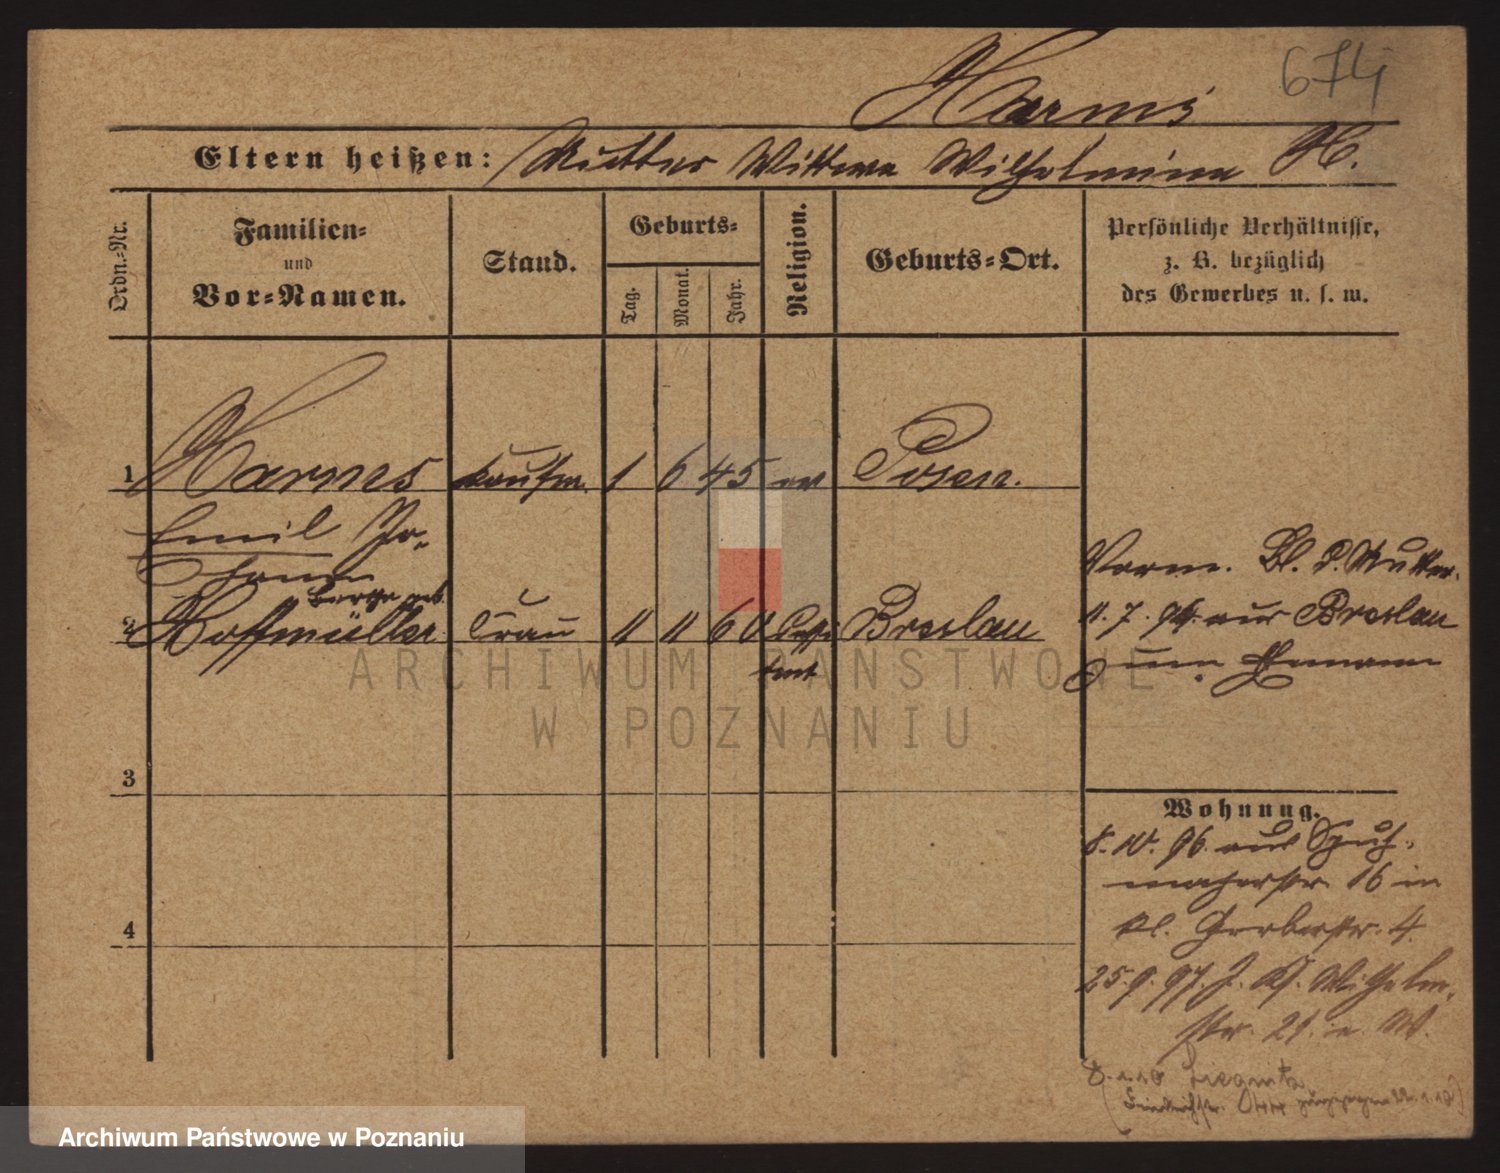 674
Harms
Eltern heißen: Mutter Wittwe Wilhelmine H.
Ordn.-Nr.
Familien-
und
Vor-Namen.
Stand.
Geburts-
Tag.
Monat.
Jahr.
Religion.
Geburts-Ort.
Persönliche Verhältnisse,
z. B. bezüglich
des Gewerbes u. s. w.
1 Harms Kaufm. 1 6 45 ev Posen.
Emil Jo-
hann
geb.
2 Hoffmüller Frau 11 11 60 Breslau
Vorm. Bl. d. Mutter.
11.7.94. aus Breslau
zum Ehemann
ARCHIWUM PAŃSTWOWE
W POZNANIU
3
4
Wohnung.
8.10.96. aus Schuh-
macherstr 16 in
kl. Gerberstr. 4.
25.9.97. Wilhelm-
str. 21.
Liegnitz
Archiwum Państwowe w Poznaniu